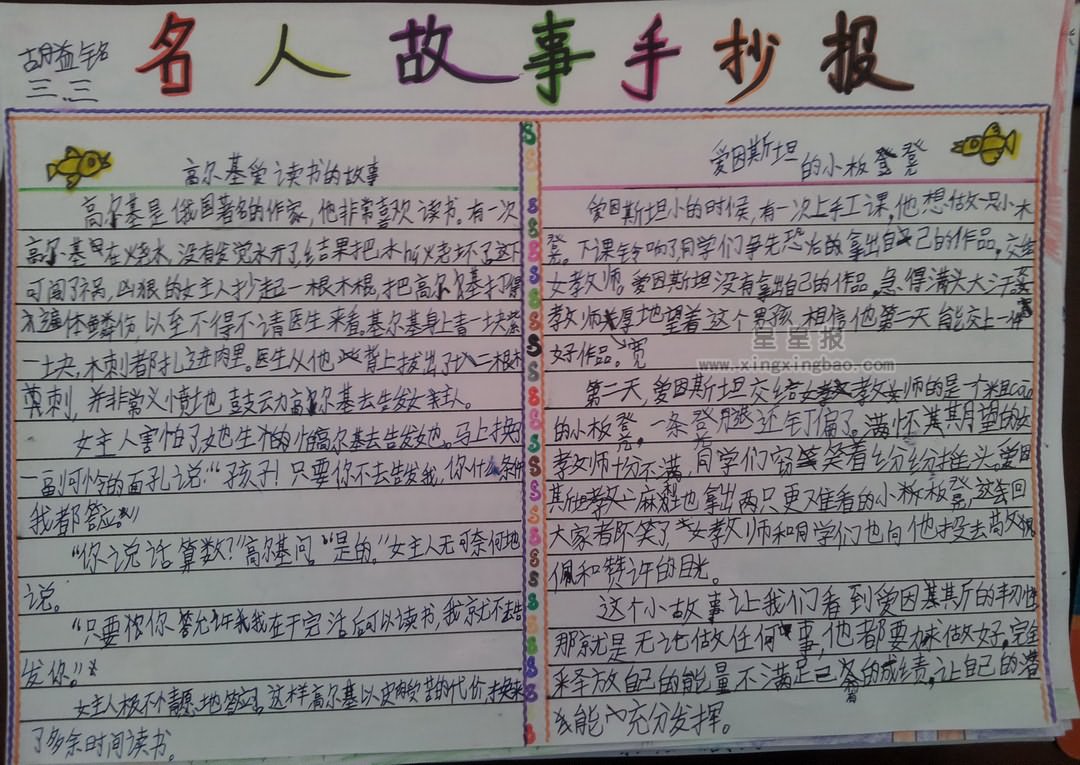 胡益铭
三.三
名人故事手抄报
高尔基爱读书的故事
高尔基是俄国著名的作家，他非常喜欢读书。有一次
高尔基在烧水，没有发觉水开了，结果把水 烧坏了。这下
可闯了祸，凶狠的女主人抄起一根木棍，把高尔基打得
体鳞伤，以至不得不请医生来看。基尔基身上青一块紫
一块，木刺都扎进肉里。医生从他背上拔出了十二根木
刺，并非常义愤地鼓动高尔基去告发女主人。
女主人害怕了她生怕高尔基去告发她。马上换了
一副可怜的面孔说：“孩子！只要你不去告发我，你什么条件
我都答应。”
“你说话算数？”高尔基问。“是的。”女主人无可奈何地
说。
“只要你答允许我在干完活后可以读书，我就不去告
发你。”
女主人极不情愿地答应。这样高尔基以皮肉受苦的代价，换来
了多余时间读书。
爱因斯坦
的小板凳
爱因斯坦小的时候，有一次上手工课，他想做一只小木
凳。下课铃响了同学们争先恐后的拿出自己的作品，交给
女教师。爱因斯坦没有拿出自己的作品，急得满头大汗。
教师宽厚地望着这个男孩，相信他第二天能交上一件
好作品。
星星报
www.xingxingbao.com
第二天，爱因斯坦交给女教师的是一个粗cāo
的小板凳，一条凳腿还钉偏了。满怀期望的女
教师十分不满，同学们窃笑着纷纷摇头。爱因
斯坦 拿出两只更难看的小板凳，这会回
大家都不笑了 女教师和同学们也向他投去高效
佩和赞许的目光。
这个小故事让我们看到爱因基斯的韧性
那就是无论做任何事，他都要力求做好。完全
释放自己的能量不满足已 的成绩，让自己的潜
能 充分发挥。